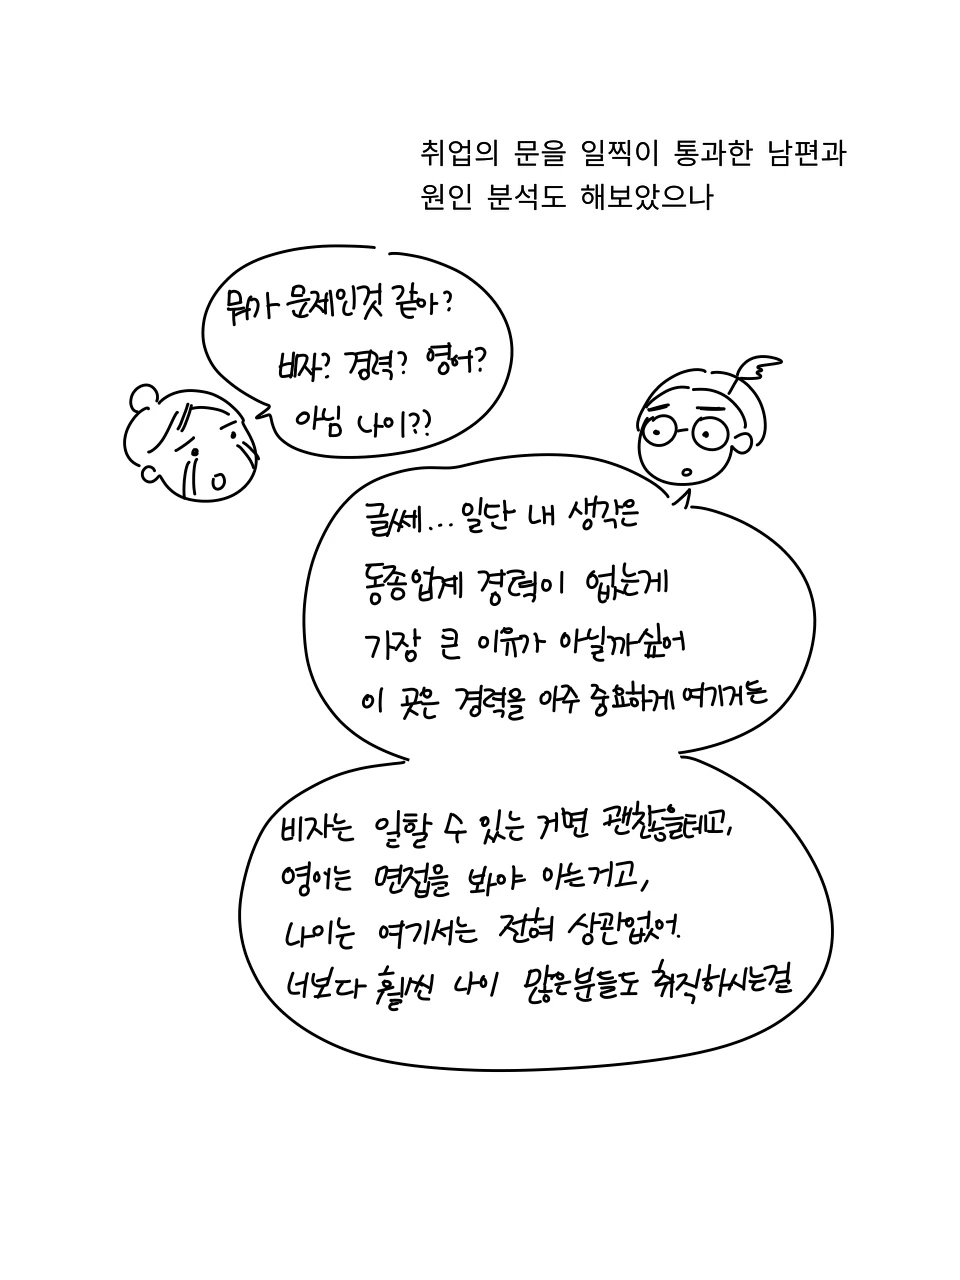 취업의 문을 일찍이 통과한 남편과
원인 분석도 해보았으나
뭐가 문제인것 같아?
비자? 경력? 영어?
아님 나이??
글쎄... 일단 내 생각은
동종업계 경력이 없는게
가장 큰 이유가 아닐까싶어
이 곳은 경력을 아주 중요하게 여기거든
비자는 일할 수 있는 거면 괜찮을테고,
영어는 면접을 봐야 아는거고,
나이는 여기서는 전혀 상관없어.
너보다 훨씬 나이 많은분들도 취직하시는걸